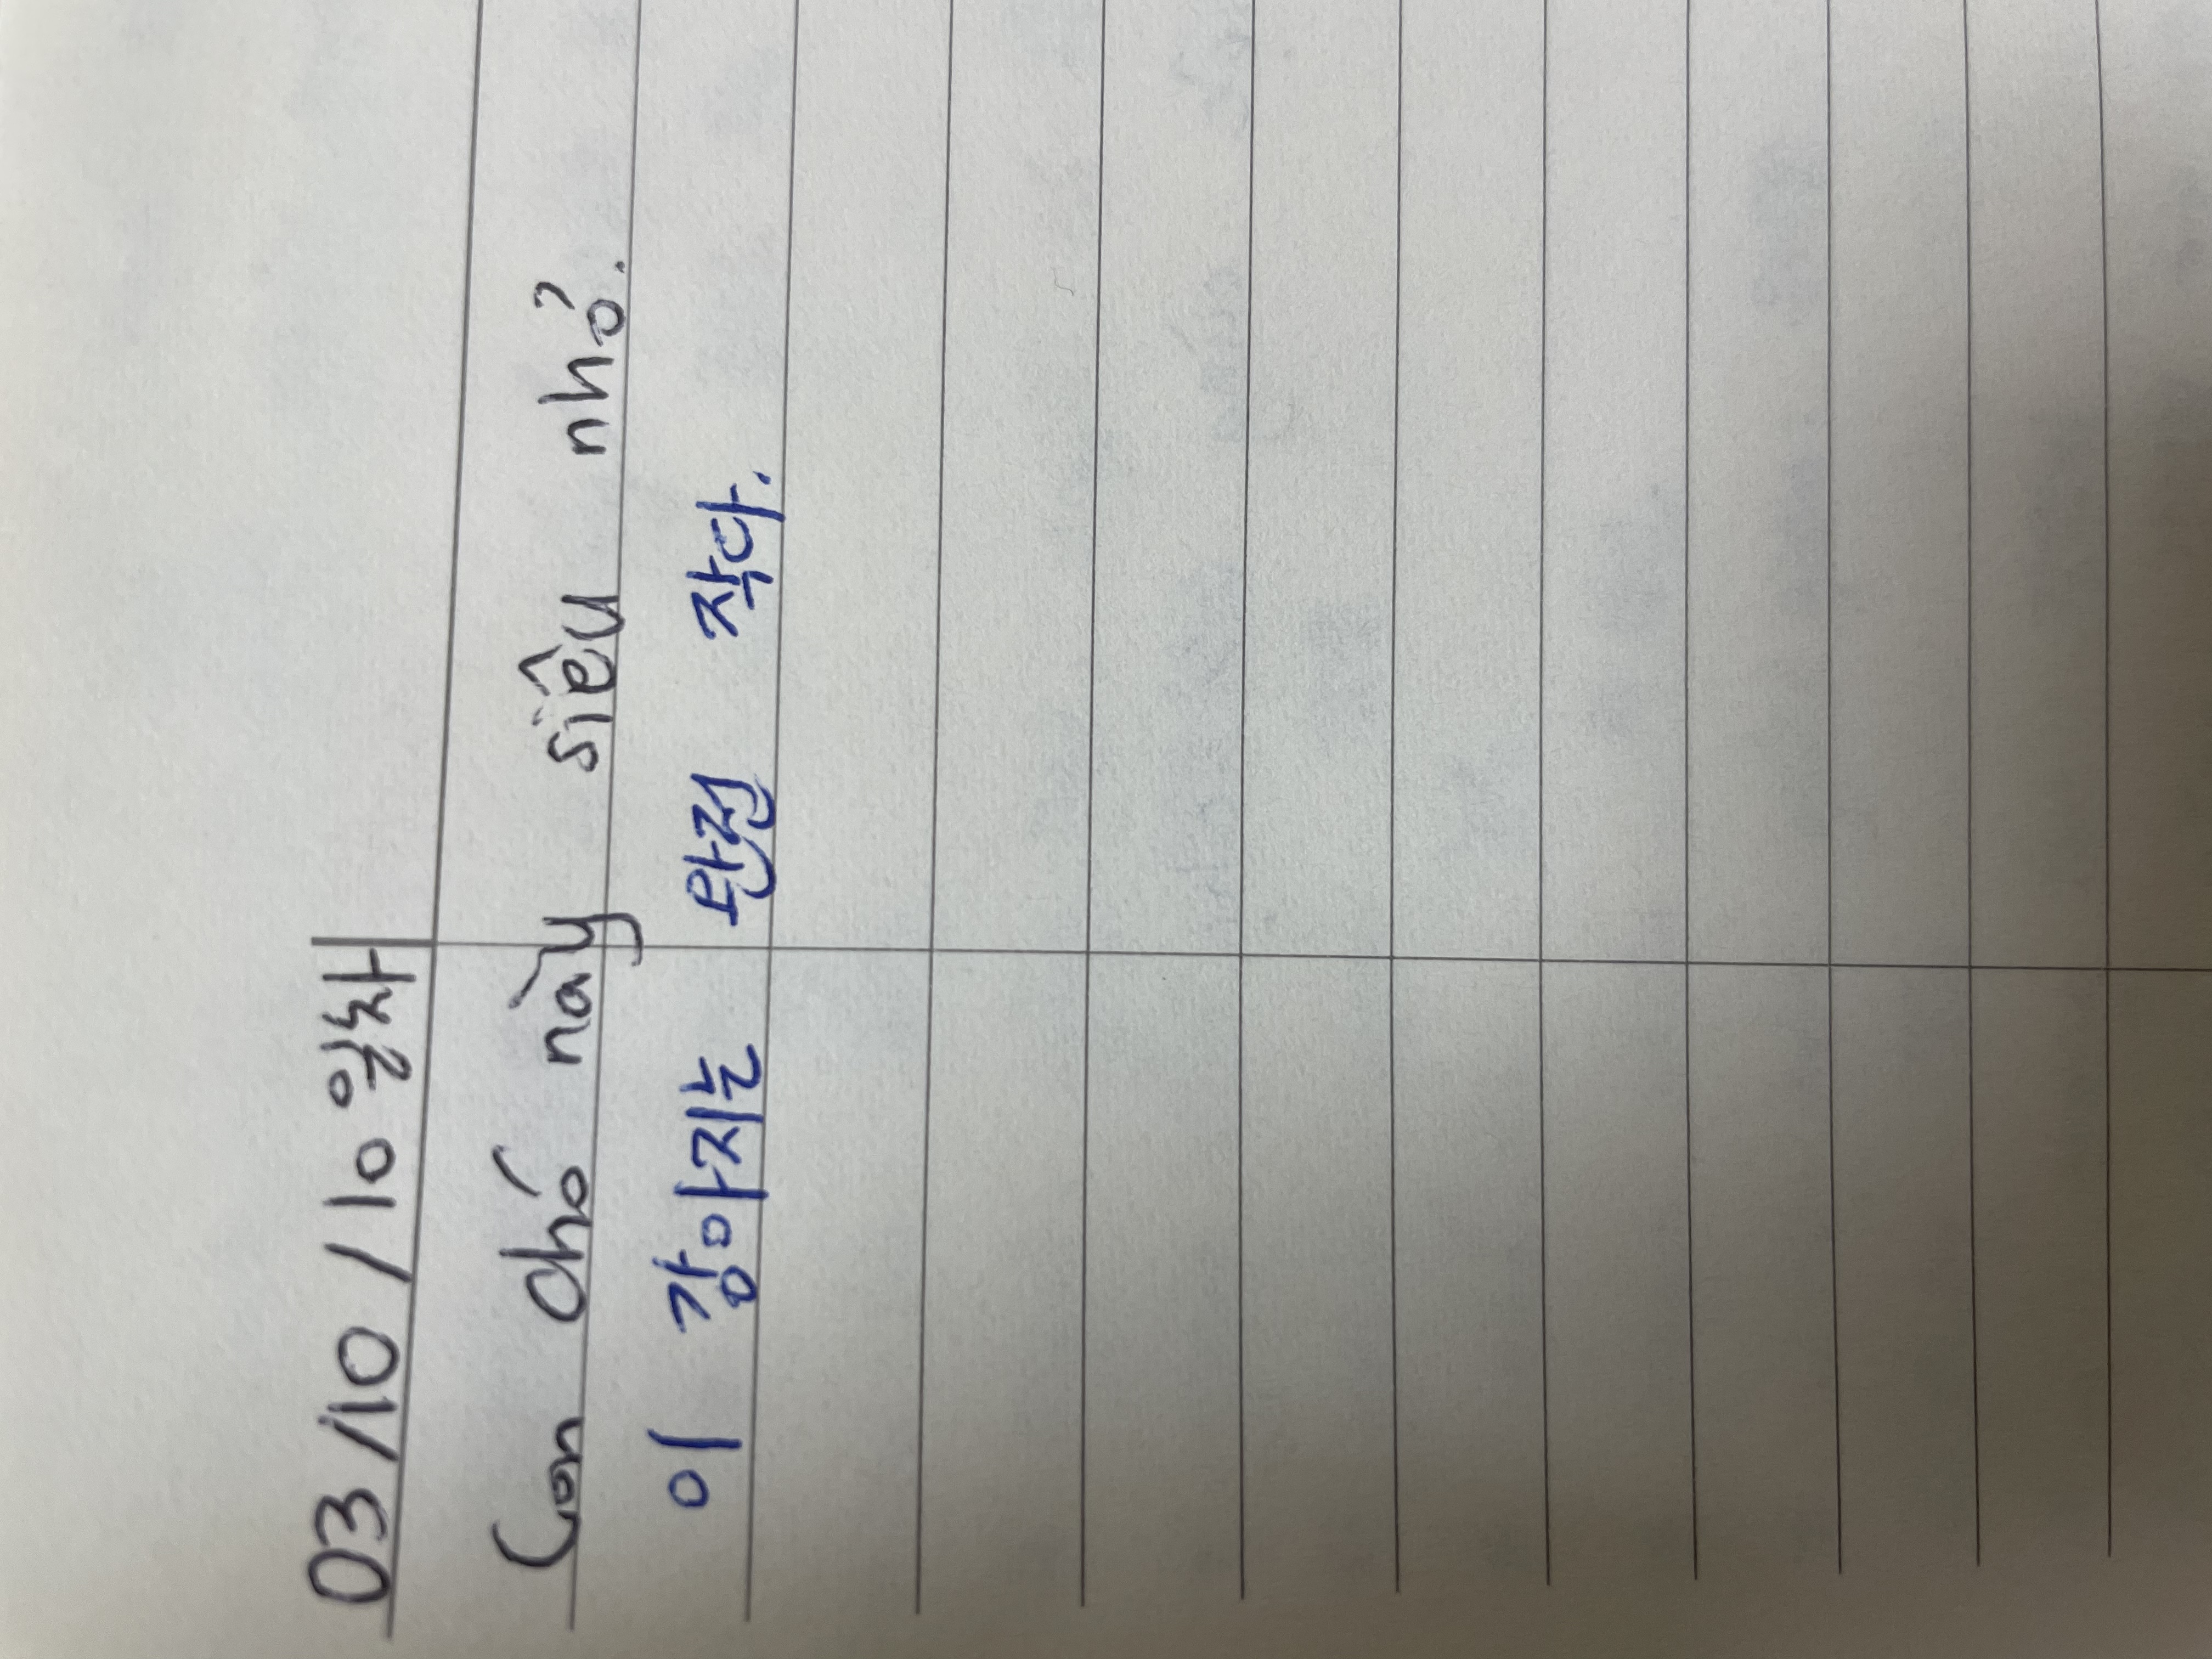 03/10/10일차
Con chó này siêu nhỏ.
이 강아지는 완전 작다.